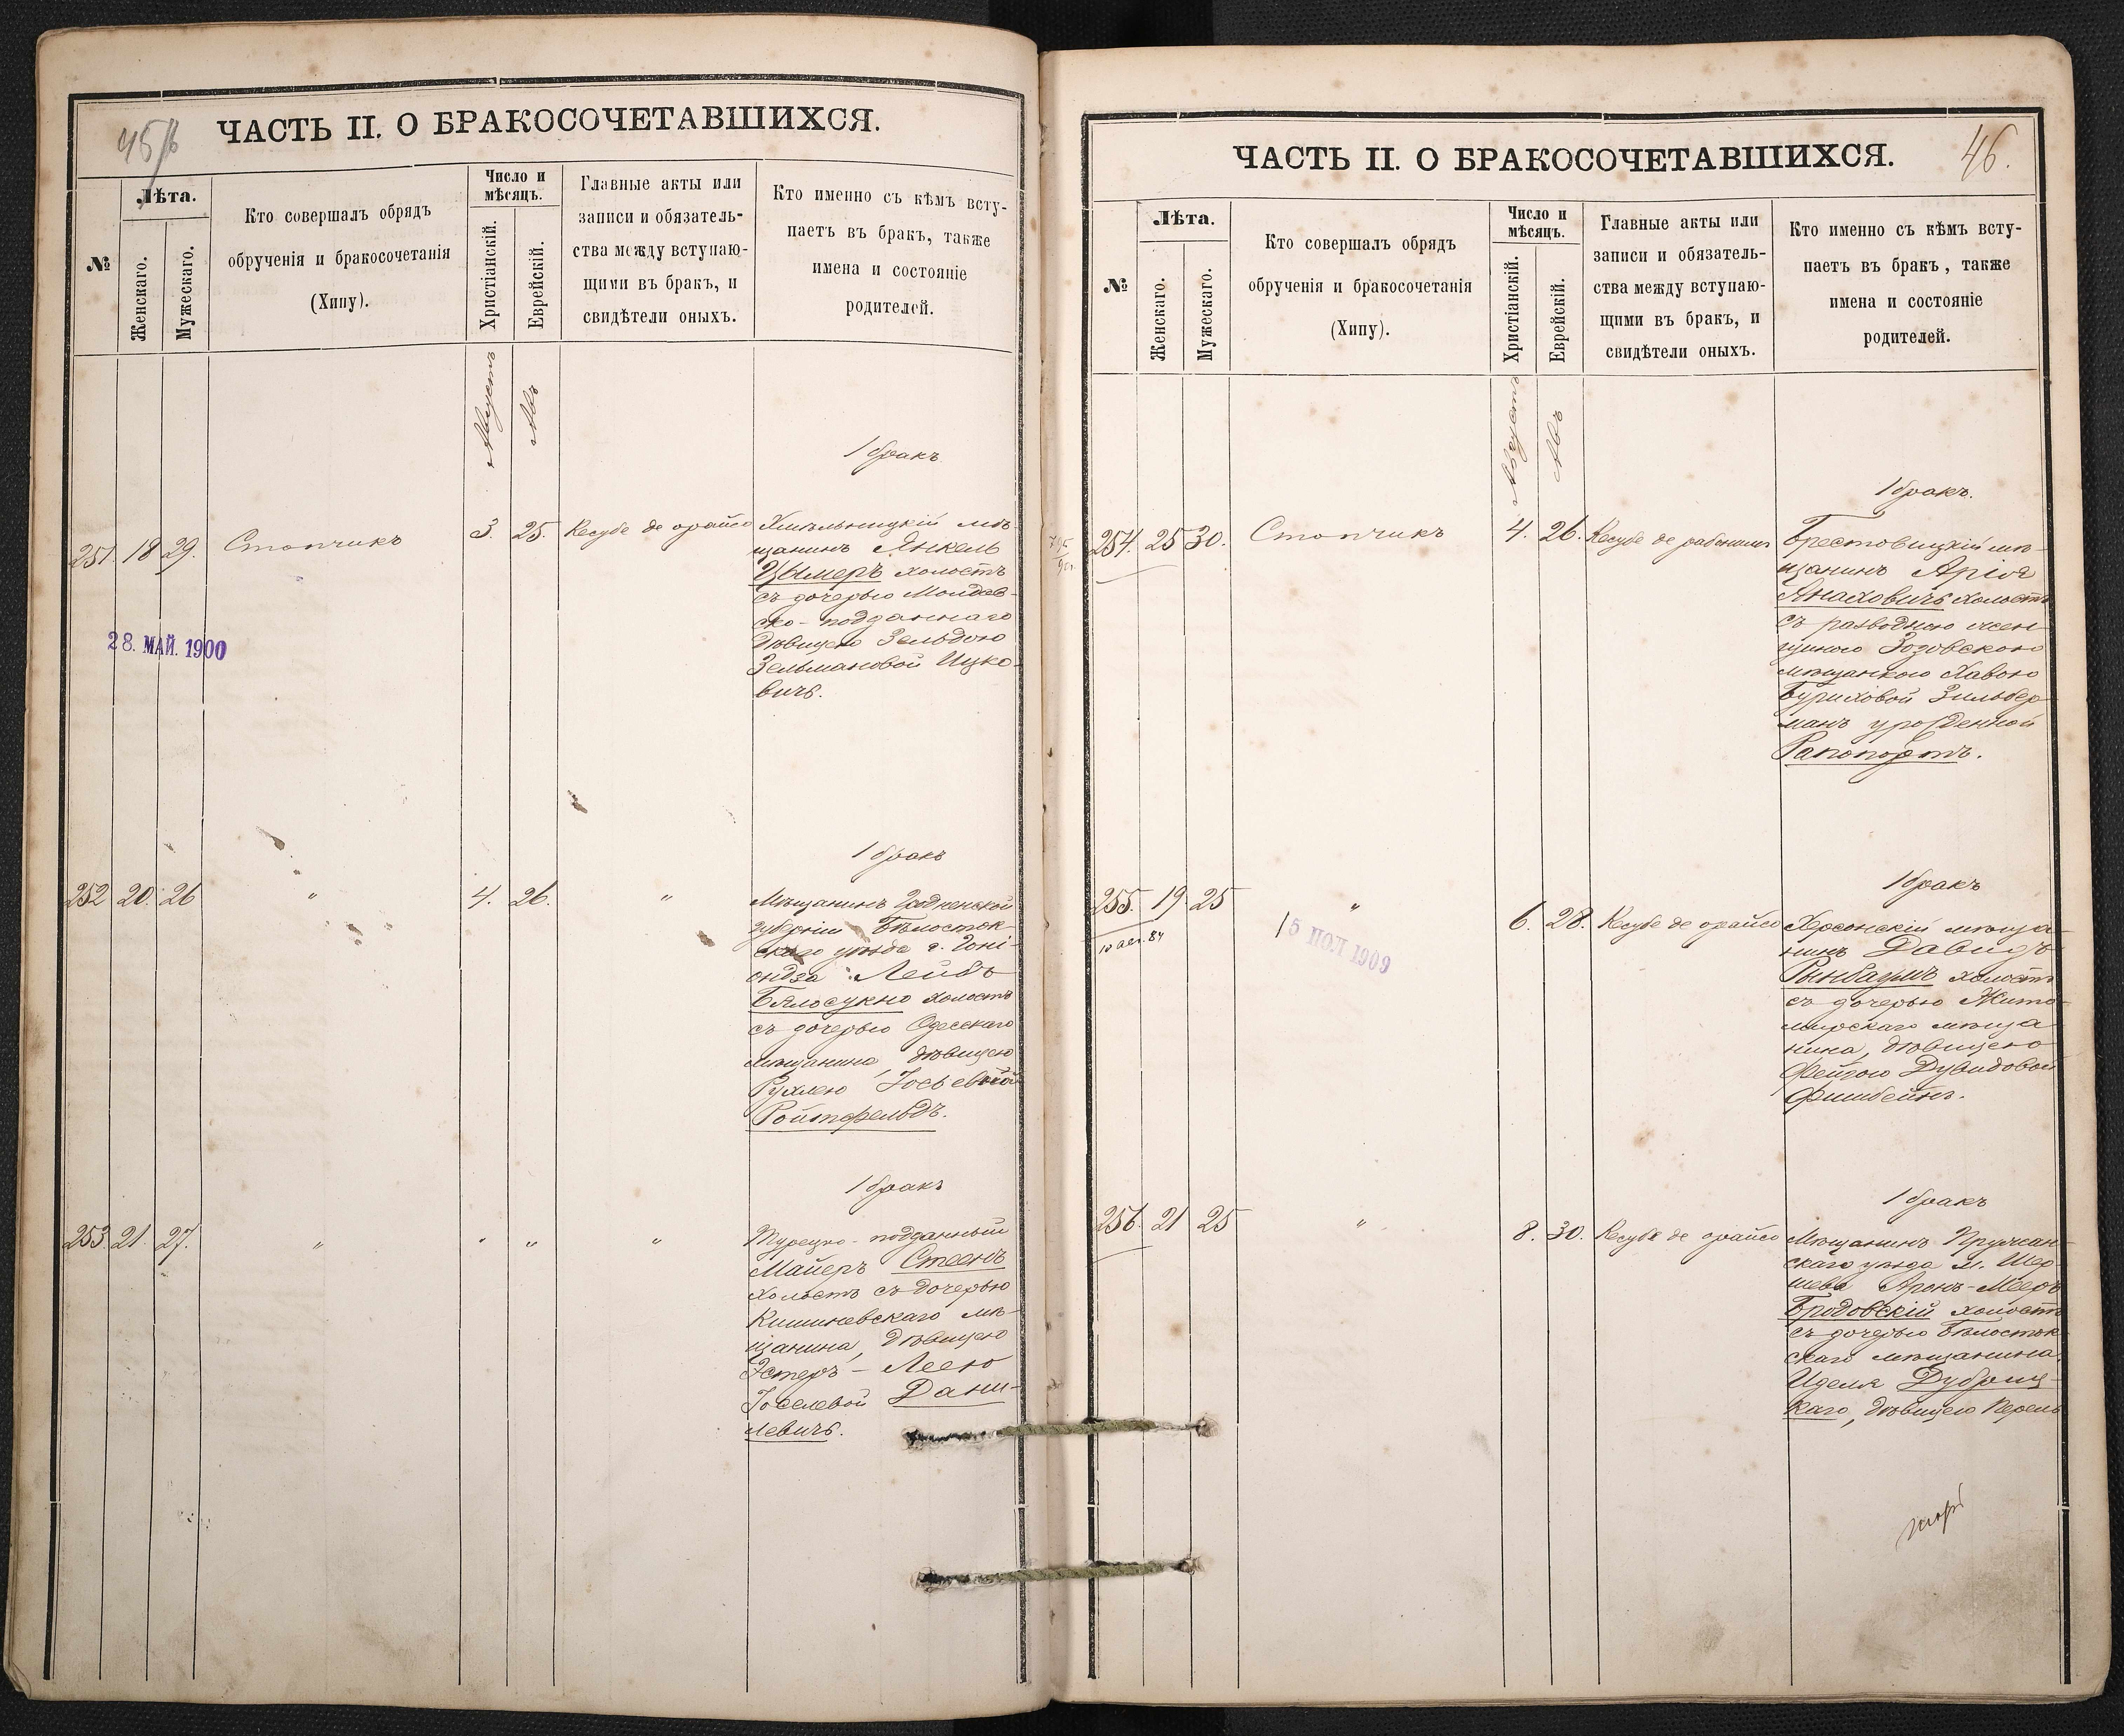 45
ЧАСТЬ II. О БРАКОСОЧЕТАВШИХСЯ.
№
Лѣта.
Женскаго.
Мужескаго.
Кто совершалъ обрядъ
обрученія и бракосочетанія
(Хипу).
Число и
мѣсяцъ.
Христіанскій.
Еврейскій.
Главные акты или
записи и обязатель-
ства между вступаю-
щими въ бракъ, и
свидѣтели оныхъ.
Кто именно съ кѣмъ всту-
паетъ въ бракъ, также
имена и состояніе
родителей.
Августъ
Авъ
1 бракъ
251. 18 29. Стопчикъ 3. 25. Кесубе де орайсо
Хмѣльницкій мѣ-
щанинъ Янкель
Цымеръ холостъ
съ дочерью Молдав-
ско-подданнаго
дѣвицею Зельдою
Зельмановой Ицко-
вичъ.
28. МАЙ. 1900
1 бракъ
252 20. 26 " 4. 26. "
Мѣщанинъ Гродненской
губерніи Бѣлосток-
скаго уѣзда г. Гоні-
ондза Лейбъ
Бялосукно холостъ
съ дочерью Одесскаго
мѣщанина, дѣвицею
Рухлею Іосьевой
Ройтфельдъ.
1 бракъ
253. 21. 27. " " " "
Турецко-подданный
Майеръ Стеенъ
холостъ съ дочерью
Кишиневскаго мѣ-
щанина, дѣвицею
Эстеръ-Леею
Іоселевой Дани-
левичъ.
46.
ЧАСТЬ II. О БРАКОСОЧЕТАВШИХСЯ.
№
Лѣта.
Женскаго.
Мужескаго.
Кто совершалъ обрядъ
обрученія и бракосочетанія
(Хипу).
Число и
мѣсяцъ.
Христіанскій.
Еврейскій.
Главные акты или
записи и обязатель-
ства между вступаю-
щими въ бракъ, и
свидѣтели оныхъ.
Кто именно съ кѣмъ всту-
паетъ въ бракъ, также
имена и состояніе
родителей.
Августъ
Авъ
1 бракъ.
254. 25 30. Стопчикъ 4. 26. Кесубе де
Брестовицкій мѣ-
щанинъ Арія
Янаховичъ холостъ
съ разводною жен-
щиною
мѣщанкою Хавою
Бурихової Зильбер-
манъ урожденной
Рапопортъ.
1 бракъ
255. 19. 25 " 6. 28. Кесубе де орайсо
Херсонскій мѣща-
нинъ Давидъ
холостъ
съ дочерью Жито-
мирскаго мѣща-
нина, дѣвицею
Фейгою Дувидовой
Фишбейнъ.
15 ІЮЛ 1909
1 бракъ
256. 21 25 " 8. 30. Кесубе де орайсо
Мѣщанинъ Пружан-
скаго уѣзда м. Шер-
шева Аронъ-Мееръ
Бродовскій холостъ
съ дочерью Бѣлосток-
скаго мѣщанина
Иделя Дубриц-
каго, дѣвицею Перель